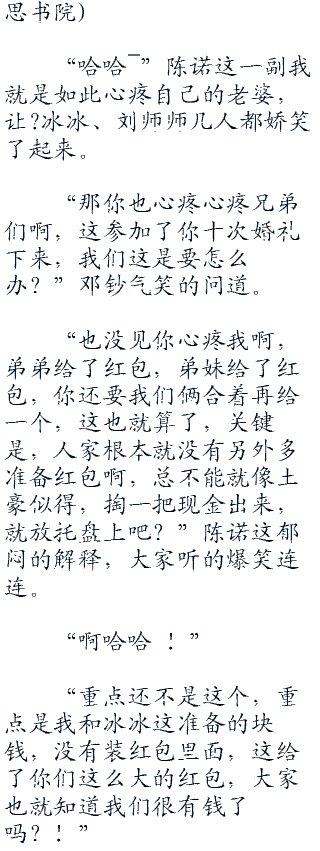 思书院)
“哈哈¯”陈诺这一副我
就是如此心疼自己的老婆，
让?冰冰、刘师师几人都娇笑
了起来。
“那你也心疼心疼兄弟
们啊，这参加了你十次婚礼
下来，我们这是要怎么
办？”邓钞气笑的问道。
“也没见你心疼我啊，
弟弟给了红包，弟妹给了红
包，你还要我们俩合着再给
一个，这也就算了，关键
是，人家根本就没有另外多
准备红包啊，总不能就像土
豪似得，掏一把现金出来，
就放托盘上吧？”陈诺这郁
闷的解释，大家听的爆笑连
连。
“啊哈哈 ！”
“重点还不是这个，重
点是我和冰冰这准备的块
钱，没有装红包里面，这给
了你们这么大的红包，大家
也就知道我们很有钱了
吗？！”